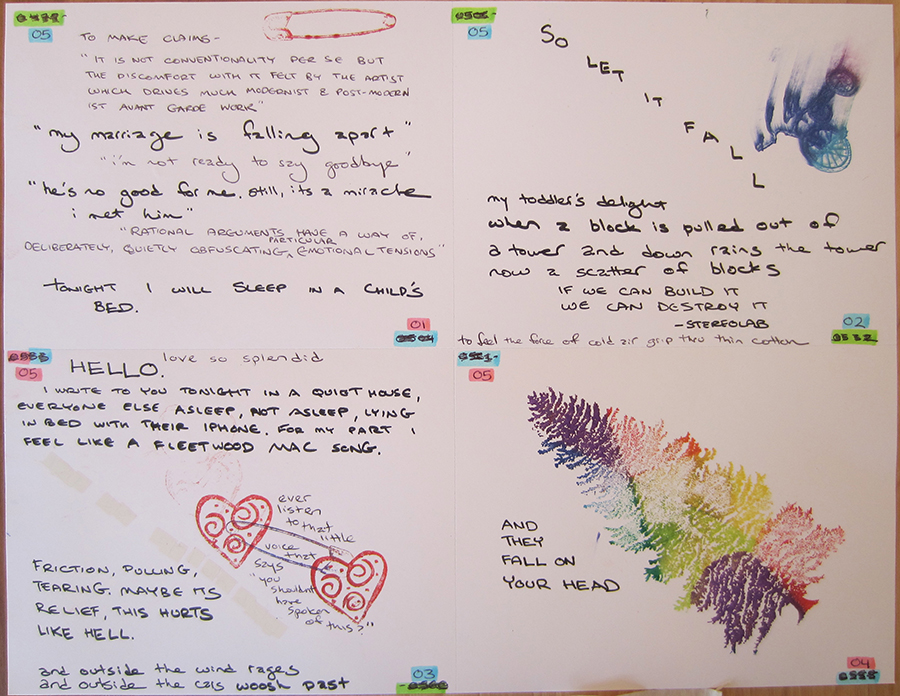 05
TO MAKE CLAIMS-
"IT IS NOT CONVENTIONALITY PER SE BUT
THE DISCOMFORT WITH IT FELT BY THE ARTIST
WHICH DRIVES MUCH MODERNIST & POST-MODERN
IST AVANT GARDE WORK"
"my marriage is falling apart"
"i'm not ready to say goodbye"
"he's no good for me. still, its a miracle
i met him"
"RATIONAL ARGUMENTS HAVE A WAY OF,
DELIBERATELY, QUIETLY OBFUSCATING PARTICULAR EMOTIONAL TENSIONS"
TONIGHT I WILL SLEEP IN A CHILD'S
BED.
01
05
SO
LET
IT
FALL
my toddler's delight
when a block is pulled out of
a tower and down rains the tower
now a scatter of blocks
IF WE CAN BUILD IT
WE CAN DESTROY IT
-STEREOLAB
02
to feel the force of cold air grip thru thin cotton
05
HELLO.
love so splendid
I WRITE TO YOU TONIGHT IN A QUIET HOUSE,
EVERYONE ELSE ASLEEP, NOT ASLEEP, LYING
IN BED WITH THEIR IPHONE. FOR MY PART I
FEEL LIKE A FLEETWOOD MAC SONG.
ever
listen
to that
little
voice
that
says
"you
shouldnt
have
spoken
of this?"
FRICTION, PULLING,
TEARING. MAYBE ITS
RELIEF, THIS HURTS
LIKE HELL.
and outside the wind rages
and outside the cars woosh past
03
05
AND
THEY
FALL ON
YOUR HEAD
04